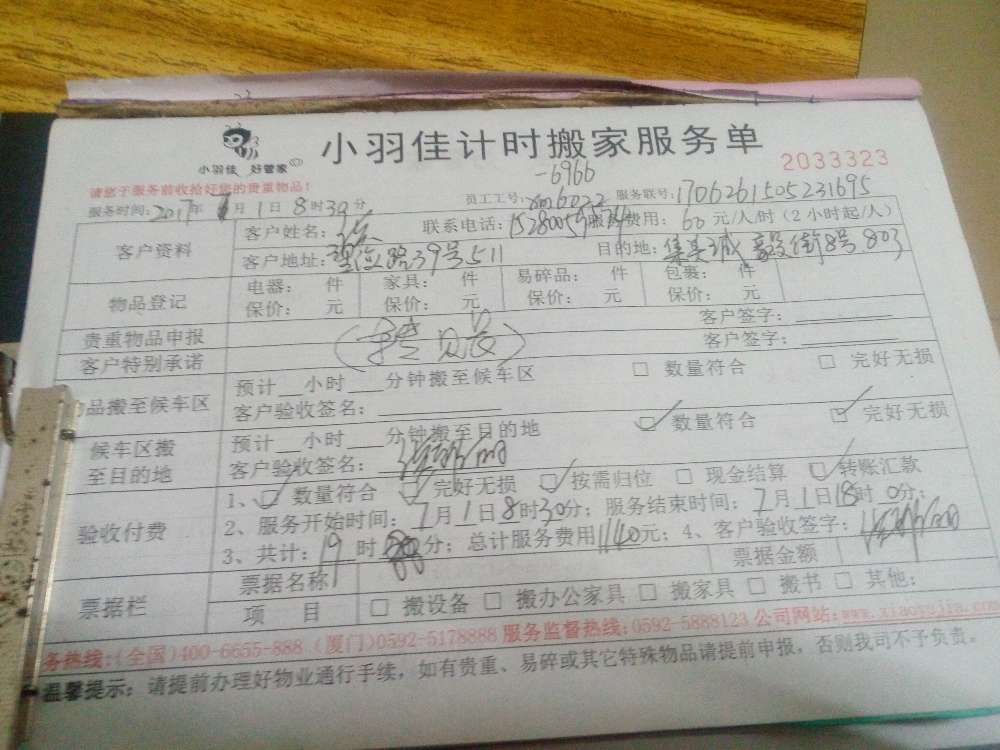 小羽佳 好管家
小羽佳计时搬家服务单
2033323
-6966
请您于服务前收拾好您的贵重物品!
员工工号: 服务联号:1706261505231695
服务时间:2017年7月1日8时30分
联系电话: 服务费用:60元/人/时(2小时起/人)
客户资料
客户姓名:
客户地址: 路39号511 目的地:集美 城 街8号803
物品登记
电器: 件 家具: 件 易碎品: 件 包裹: 件
保价: 元 保价: 元 保价: 元 保价: 元
贵重物品申报 客户签字:
客户特别承诺 客户签字:
物品搬至候车区
预计 小时 分钟搬至候车区 □ 数量符合 □ 完好无损
客户验收签名:
候车区搬至目的地
预计 小时 分钟搬至目的地 ☑ 数量符合 ☑ 完好无损
客户验收签名:
验收付费
1、☑ 数量符合 ☑ 完好无损 ☑ 按需归位 □ 现金结算 ☑ 转账汇款
2、服务开始时间:7月1日8时30分;服务结束时间:7月1日18时0分;
3、共计:19时 分;总计服务费用1140元;4、客户验收签字:
票据栏
票据名称 票据金额
项 目 □ 搬设备 □ 搬办公家具 □ 搬家具 □ 搬书 □ 其他:
务热线:(全国)400-6655-888 (厦门)0592-5178888 服务监督热线:0592-5888123 公司网站:www.xiaoyujia.com
温馨提示:请提前办理好物业通行手续,如有贵重、易碎或其它特殊物品请提前申报,否则我司不予负责。